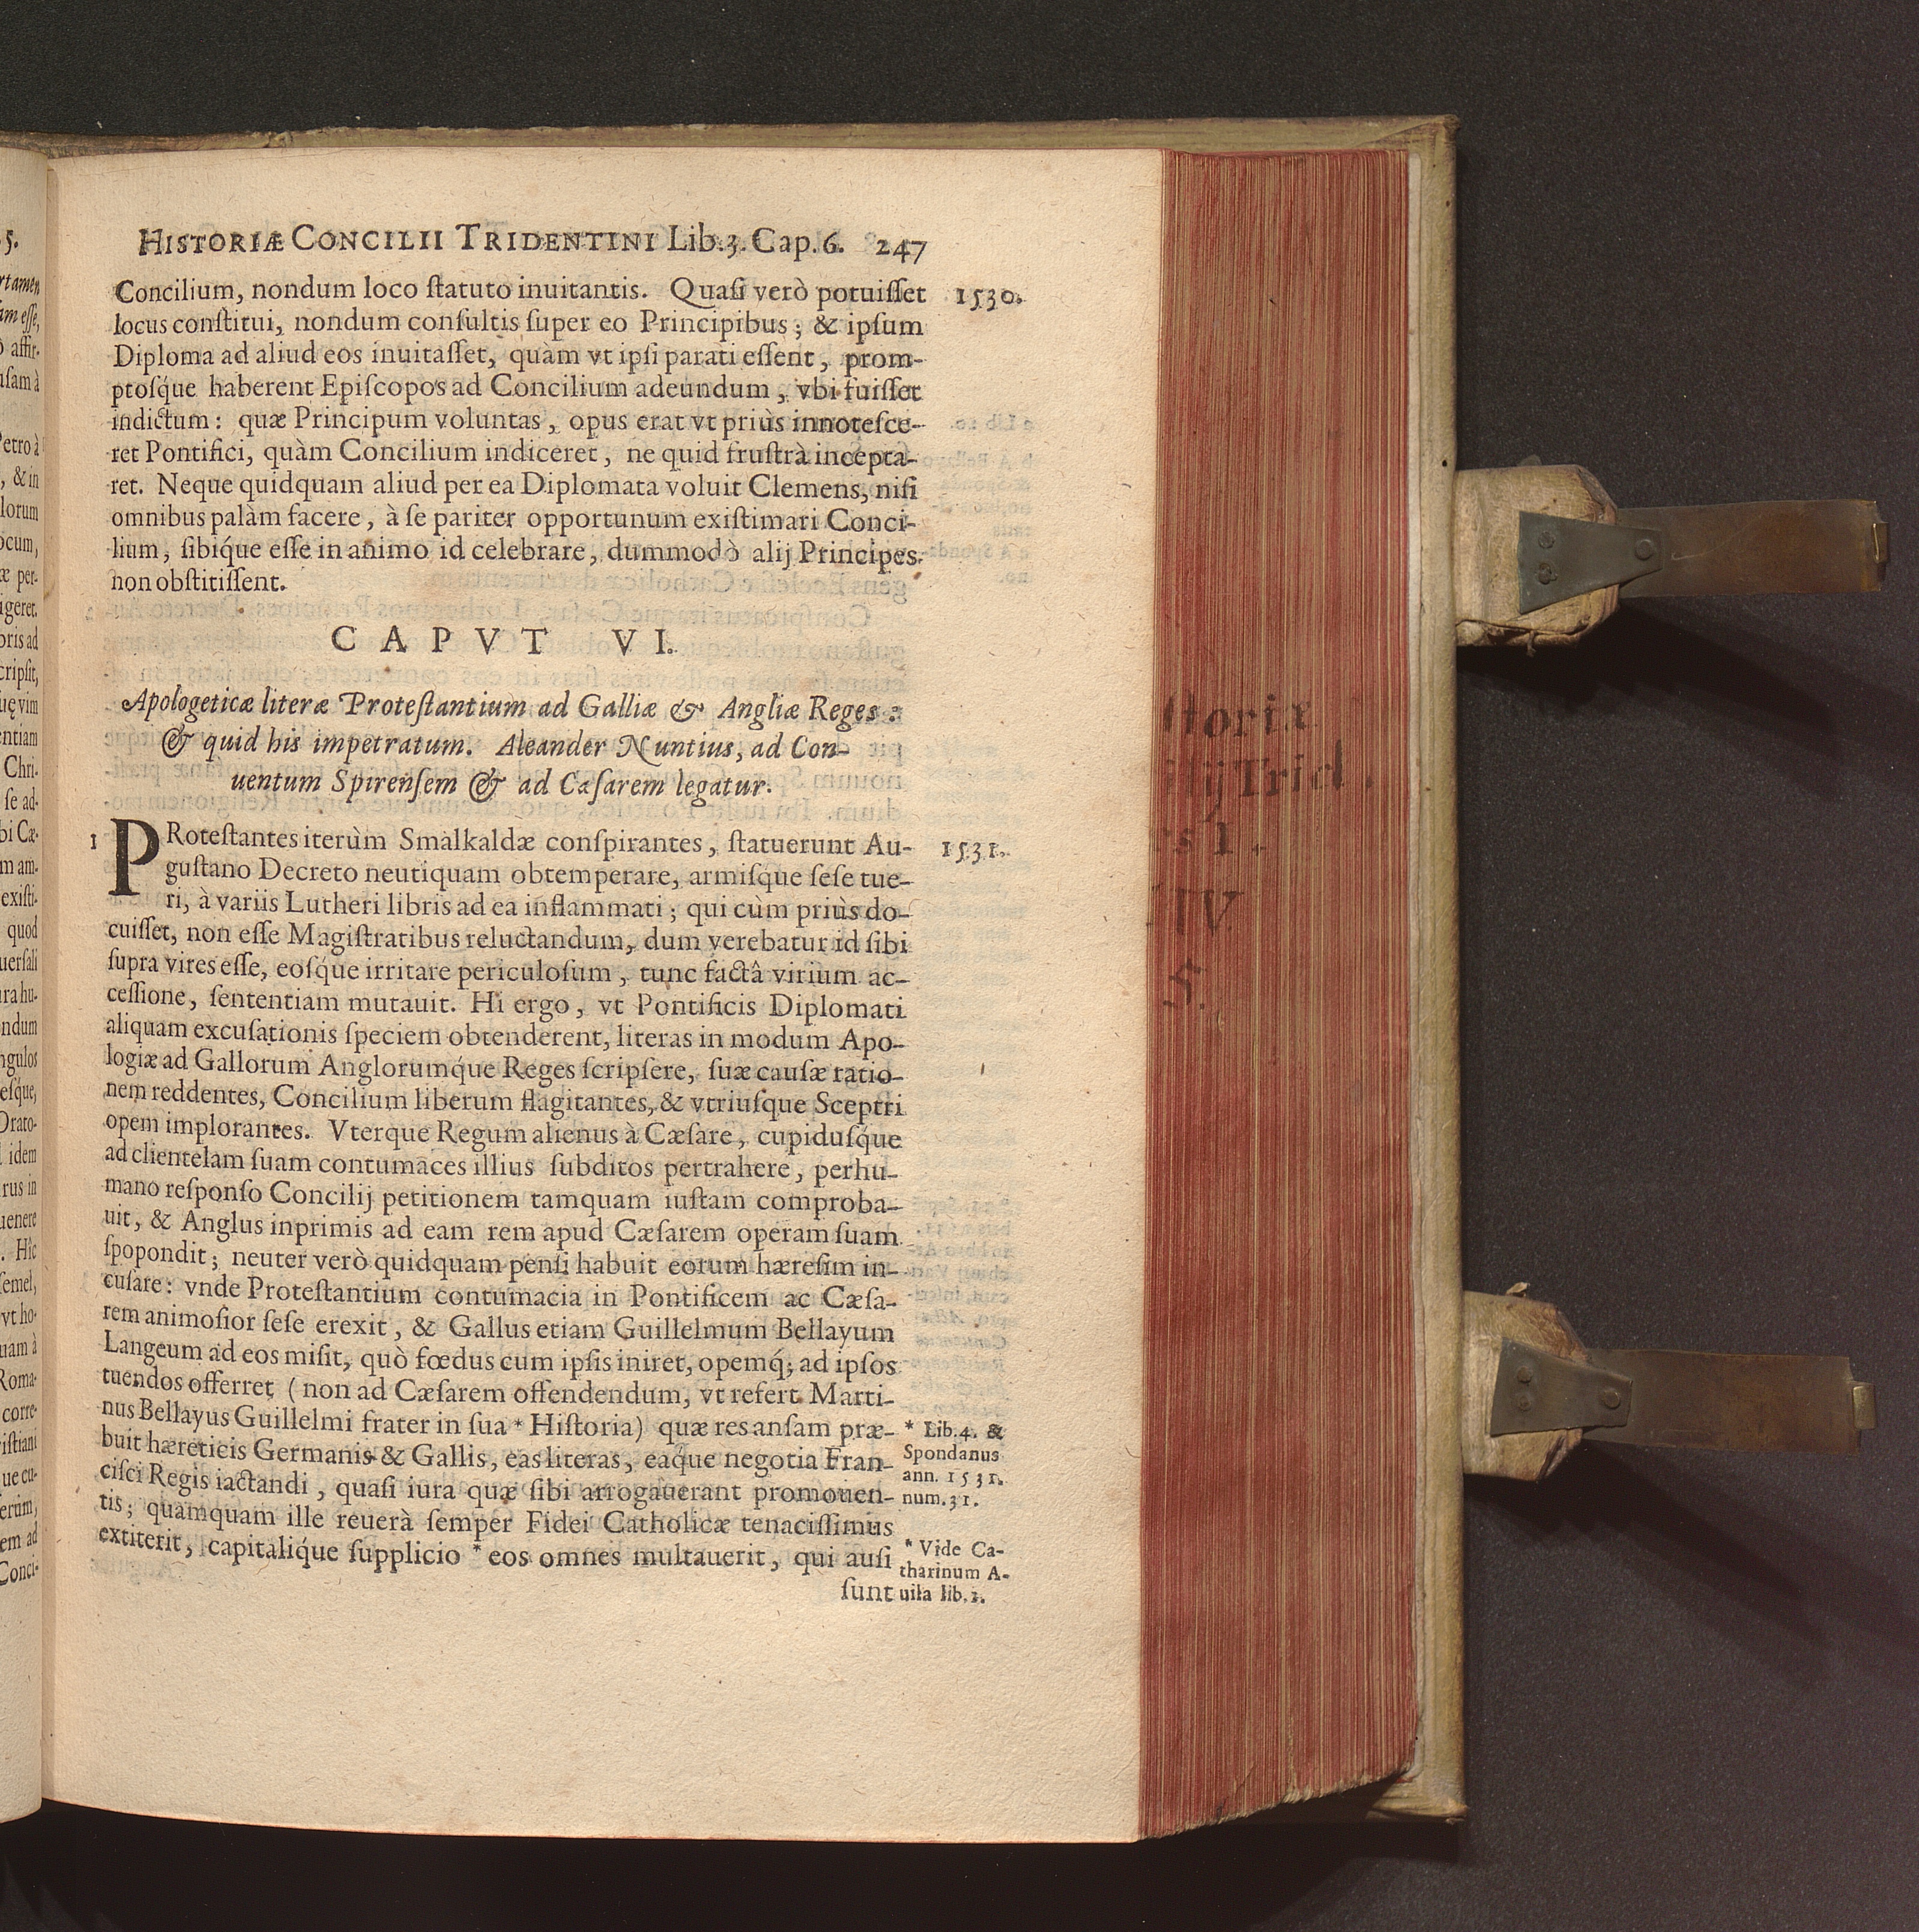 HISTORIÆ CONCILII TRIDENTINI Lib.3. Cap.6. 247
Concilium, nondum loco ſtatuto inuitantis. Quaſi verò potuiſſet
1530.
locus conſtitui, nondum conſultis ſuper eo Principibus; & ipſum
Diploma ad aliud eos inuitaſſet, quàm vt ipſi parati eſſent, prom-
ptoſq́ue haberent Epiſcopos ad Concilium adeundum, vbi fuiſſet
indictum: quæ Principum voluntas, opus erat vt priùs innoteſce-
ret Pontifici, quàm Concilium indiceret, ne quid fruſtrà incepta-
ret. Neque quidquam aliud per ea Diplomata voluit Clemens, niſi
omnibus palàm facere, à ſe pariter opportunum exiſtimari Conci-
lium, ſibiq́ue eſſe in animo id celebrare, dummodò alij Principes
non obſtitiſſent.
CAPVT VI.
Apologeticæ literæ Proteſtantium ad Galliæ & Angliæ Reges:
& quid his impetratum. Aleander Nuntius, ad Con-
uentum Spirenſem & ad Cæſarem legatur.
1 PRoteſtantes iterùm Smalkaldæ conſpirantes, ſtatuerunt Au-
1531.
guſtano Decreto neutiquam obtemperare, armiſque ſeſe tue-
ri, à variis Lutheri libris ad ea inflammati; qui cùm priùs do-
cuiſſet, non eſſe Magiſtratibus reluctandum, dum verebatur id ſibi
ſupra vires eſſe, eoſq́ue irritare periculoſum, tunc factâ virium ac-
ceſſione, ſententiam mutauit. Hi ergo, vt Pontificis Diplomati
aliquam excuſationis ſpeciem obtenderent, literas in modum Apo-
logiæ ad Gallorum Anglorumq́ue Reges ſcripſere, ſuæ cauſæ ratio-
nem reddentes, Concilium liberum flagitantes, & vtriuſque Sceptri
opem implorantes. Vterque Regum alienus à Cæſare, cupiduſq́ue
ad clientelam ſuam contumaces illius ſubditos pertrahere, perhu-
mano reſponſo Concilij petitionem tamquam iuſtam comproba-
uit, & Anglus inprimis ad eam rem apud Cæſarem operam ſuam
ſpopondit; neuter verò quidquam penſi habuit eorum hæreſim in-
cuſare: vnde Proteſtantium contumacia in Pontificem ac Cæſa-
rem animoſior ſeſe erexit, & Gallus etiam Guillelmum Bellayum
Langeum ad eos miſit, quò fœdus cum ipſis iniret, opemq́; ad ipſos
tuendos offerret (non ad Cæſarem offendendum, vt refert Marti-
nus Bellayus Guillelmi frater in ſua * Hiſtoria) quæ res anſam præ-
buit hæreticis Germanis & Gallis, eas literas, eaq́ue negotia Fran-
ciſci Regis iactandi, quaſi iura quæ ſibi arrogauerant promouen-
tis; quamquam ille reuerà ſemper Fidei Catholicæ tenaciſſimus
extiterit, capitaliq́ue ſupplicio * eos omnes multauerit, qui auſi
ſunt
* Lib.4. &
Spondanus
ann. 1531.
num.31.
* Vide Ca-
tharinum A-
uila lib.1.